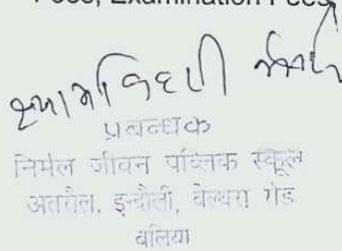 Fees, Examination Fees
प्रबन्धक
निर्मल जीवन पब्लिक स्कूल
अतरौल, इन्दौली, वेल्थरा रोड
बलिया